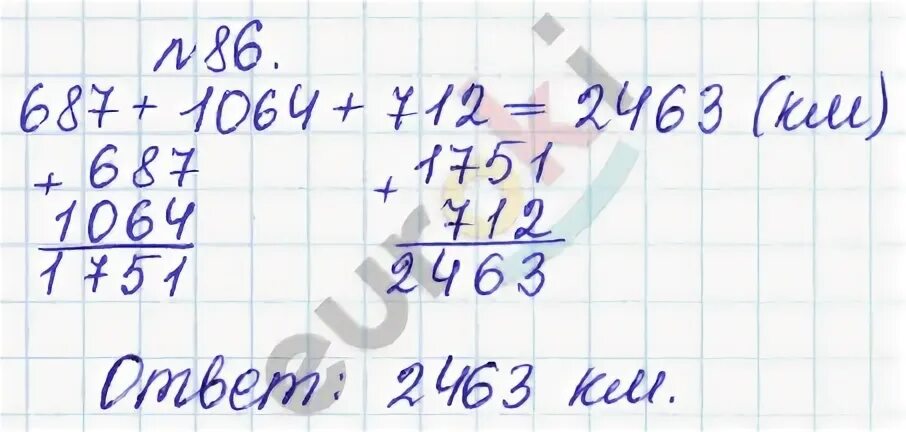 №86.
687 + 1064 + 712 = 2463 (км)
+ 687
1064
1751
+ 1751
712
2463
Ответ: 2463 км.
euroki